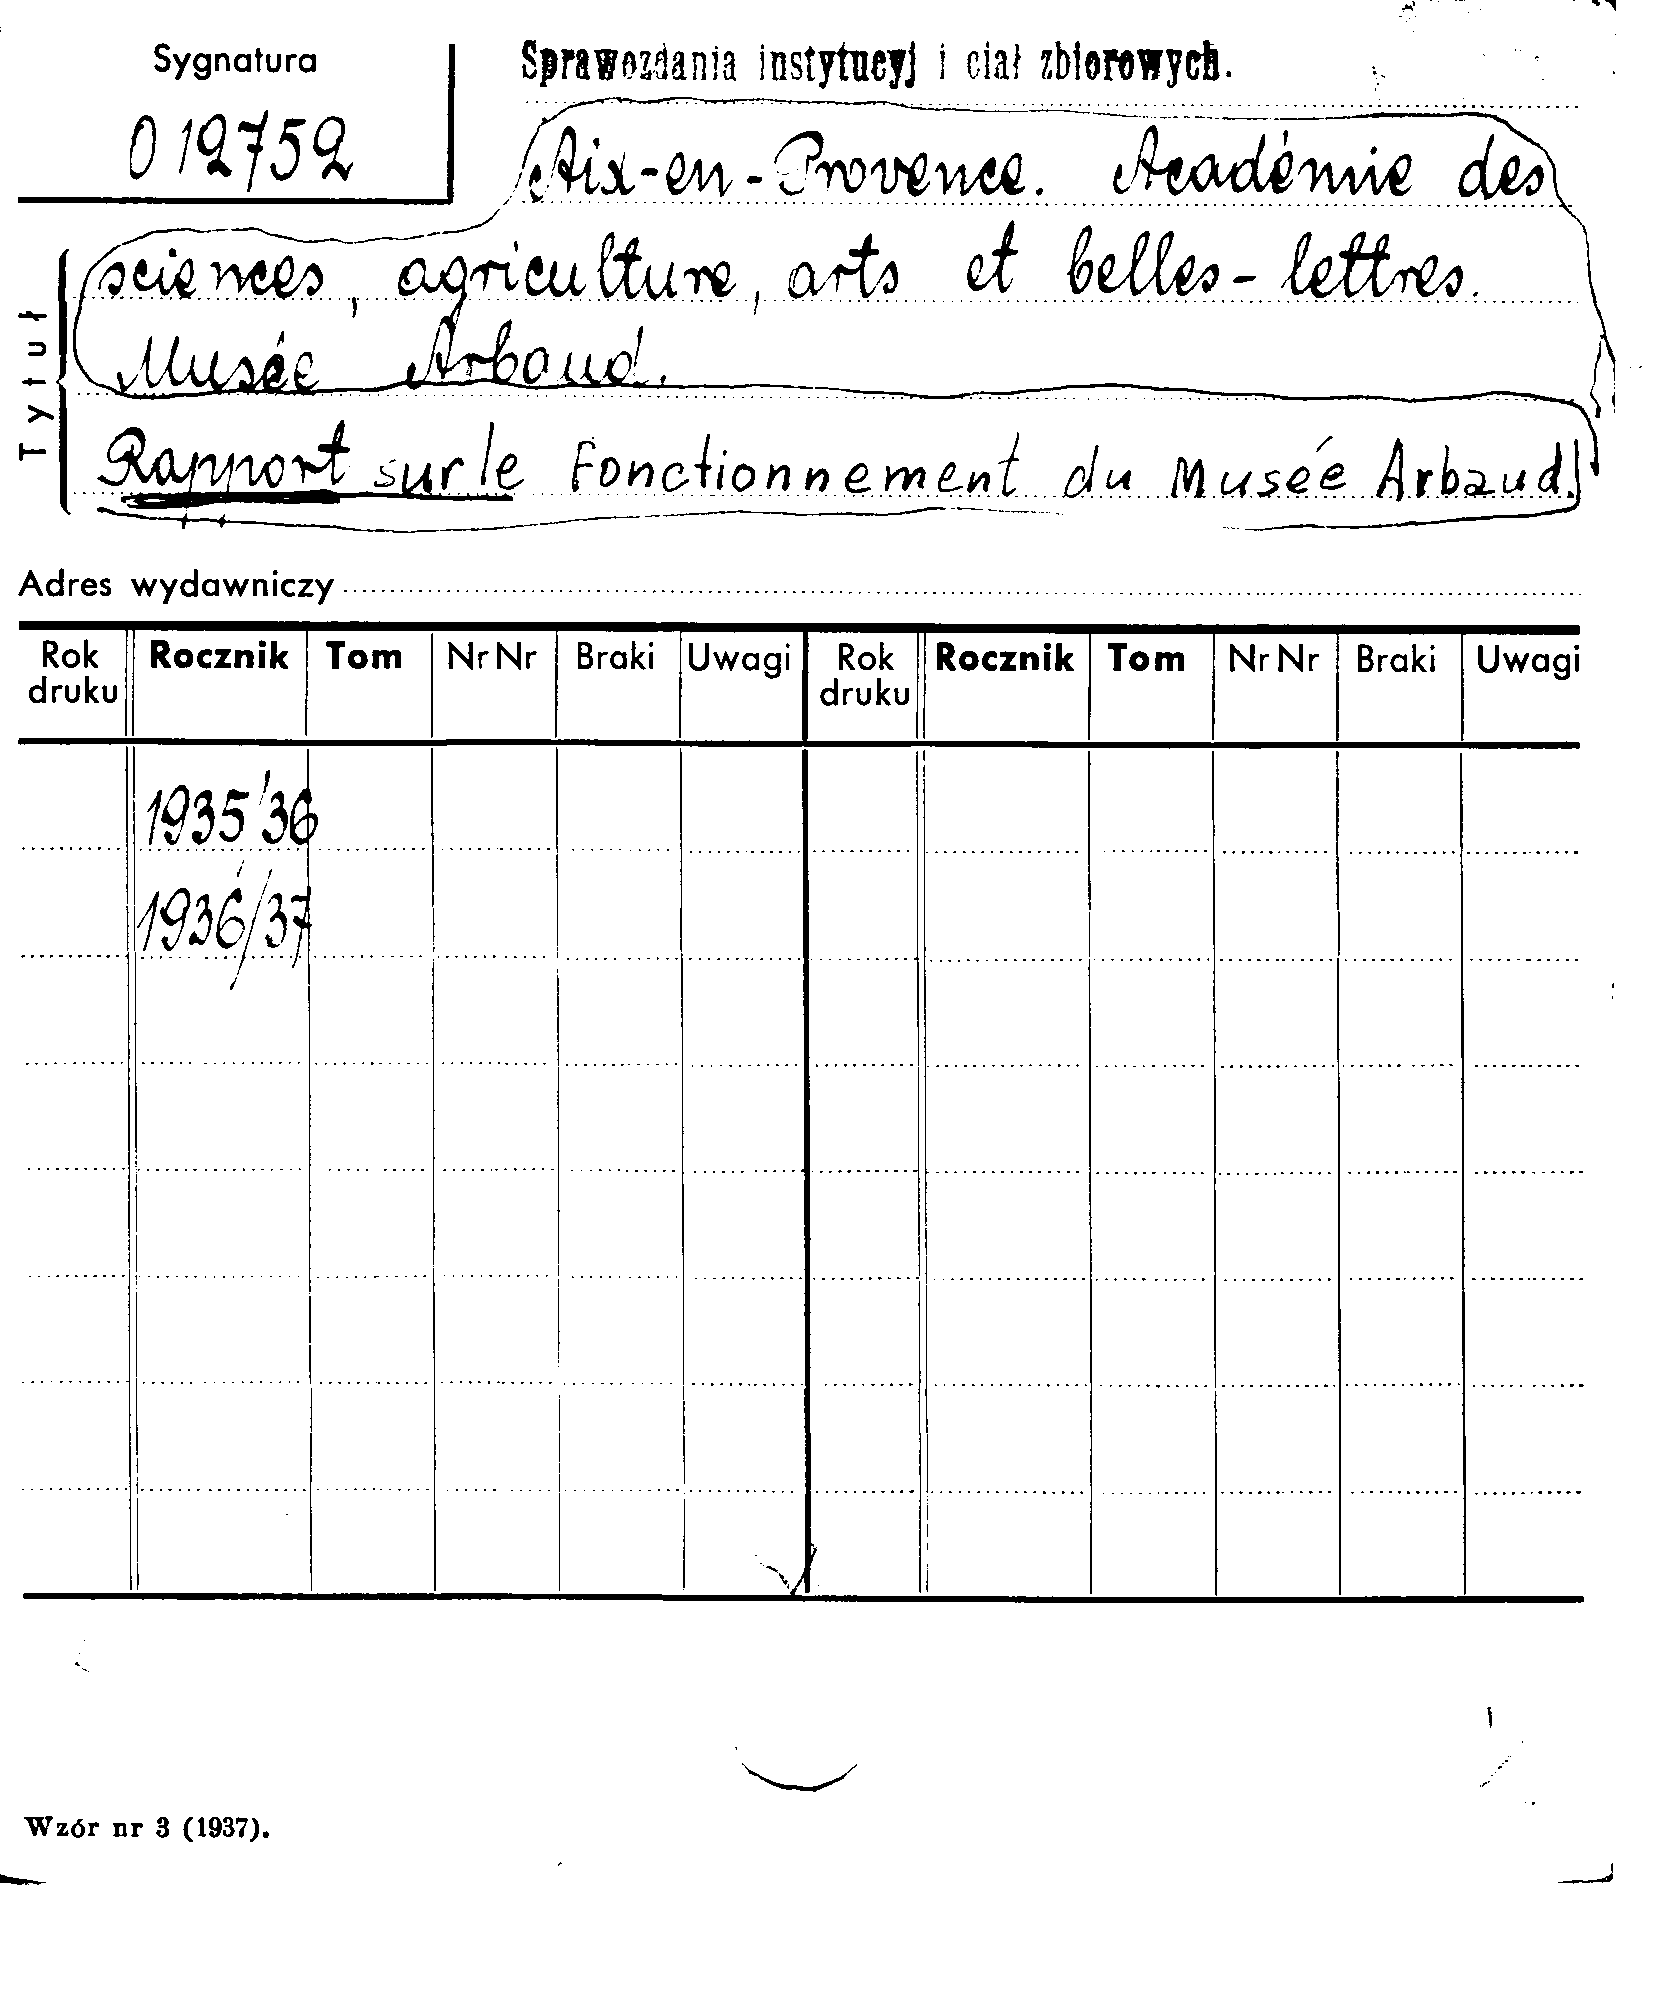 Sygnatura
012752
Sprawozdania instytucyj i ciał zbiorowych.
Aix-en-Provence. Académie des
sciences, agriculture, arts et belles-lettres.
Musée Arbaud.
Rapport sur le Fonctionnement du Musée Arbaud.
Tytuł
Adres wydawniczy
Rok druku Rocznik Tom Nr Nr Braki Uwagi Rok druku Rocznik Tom Nr Nr Braki Uwagi
1935/36
1936/37
Wzór nr 3 (1937).